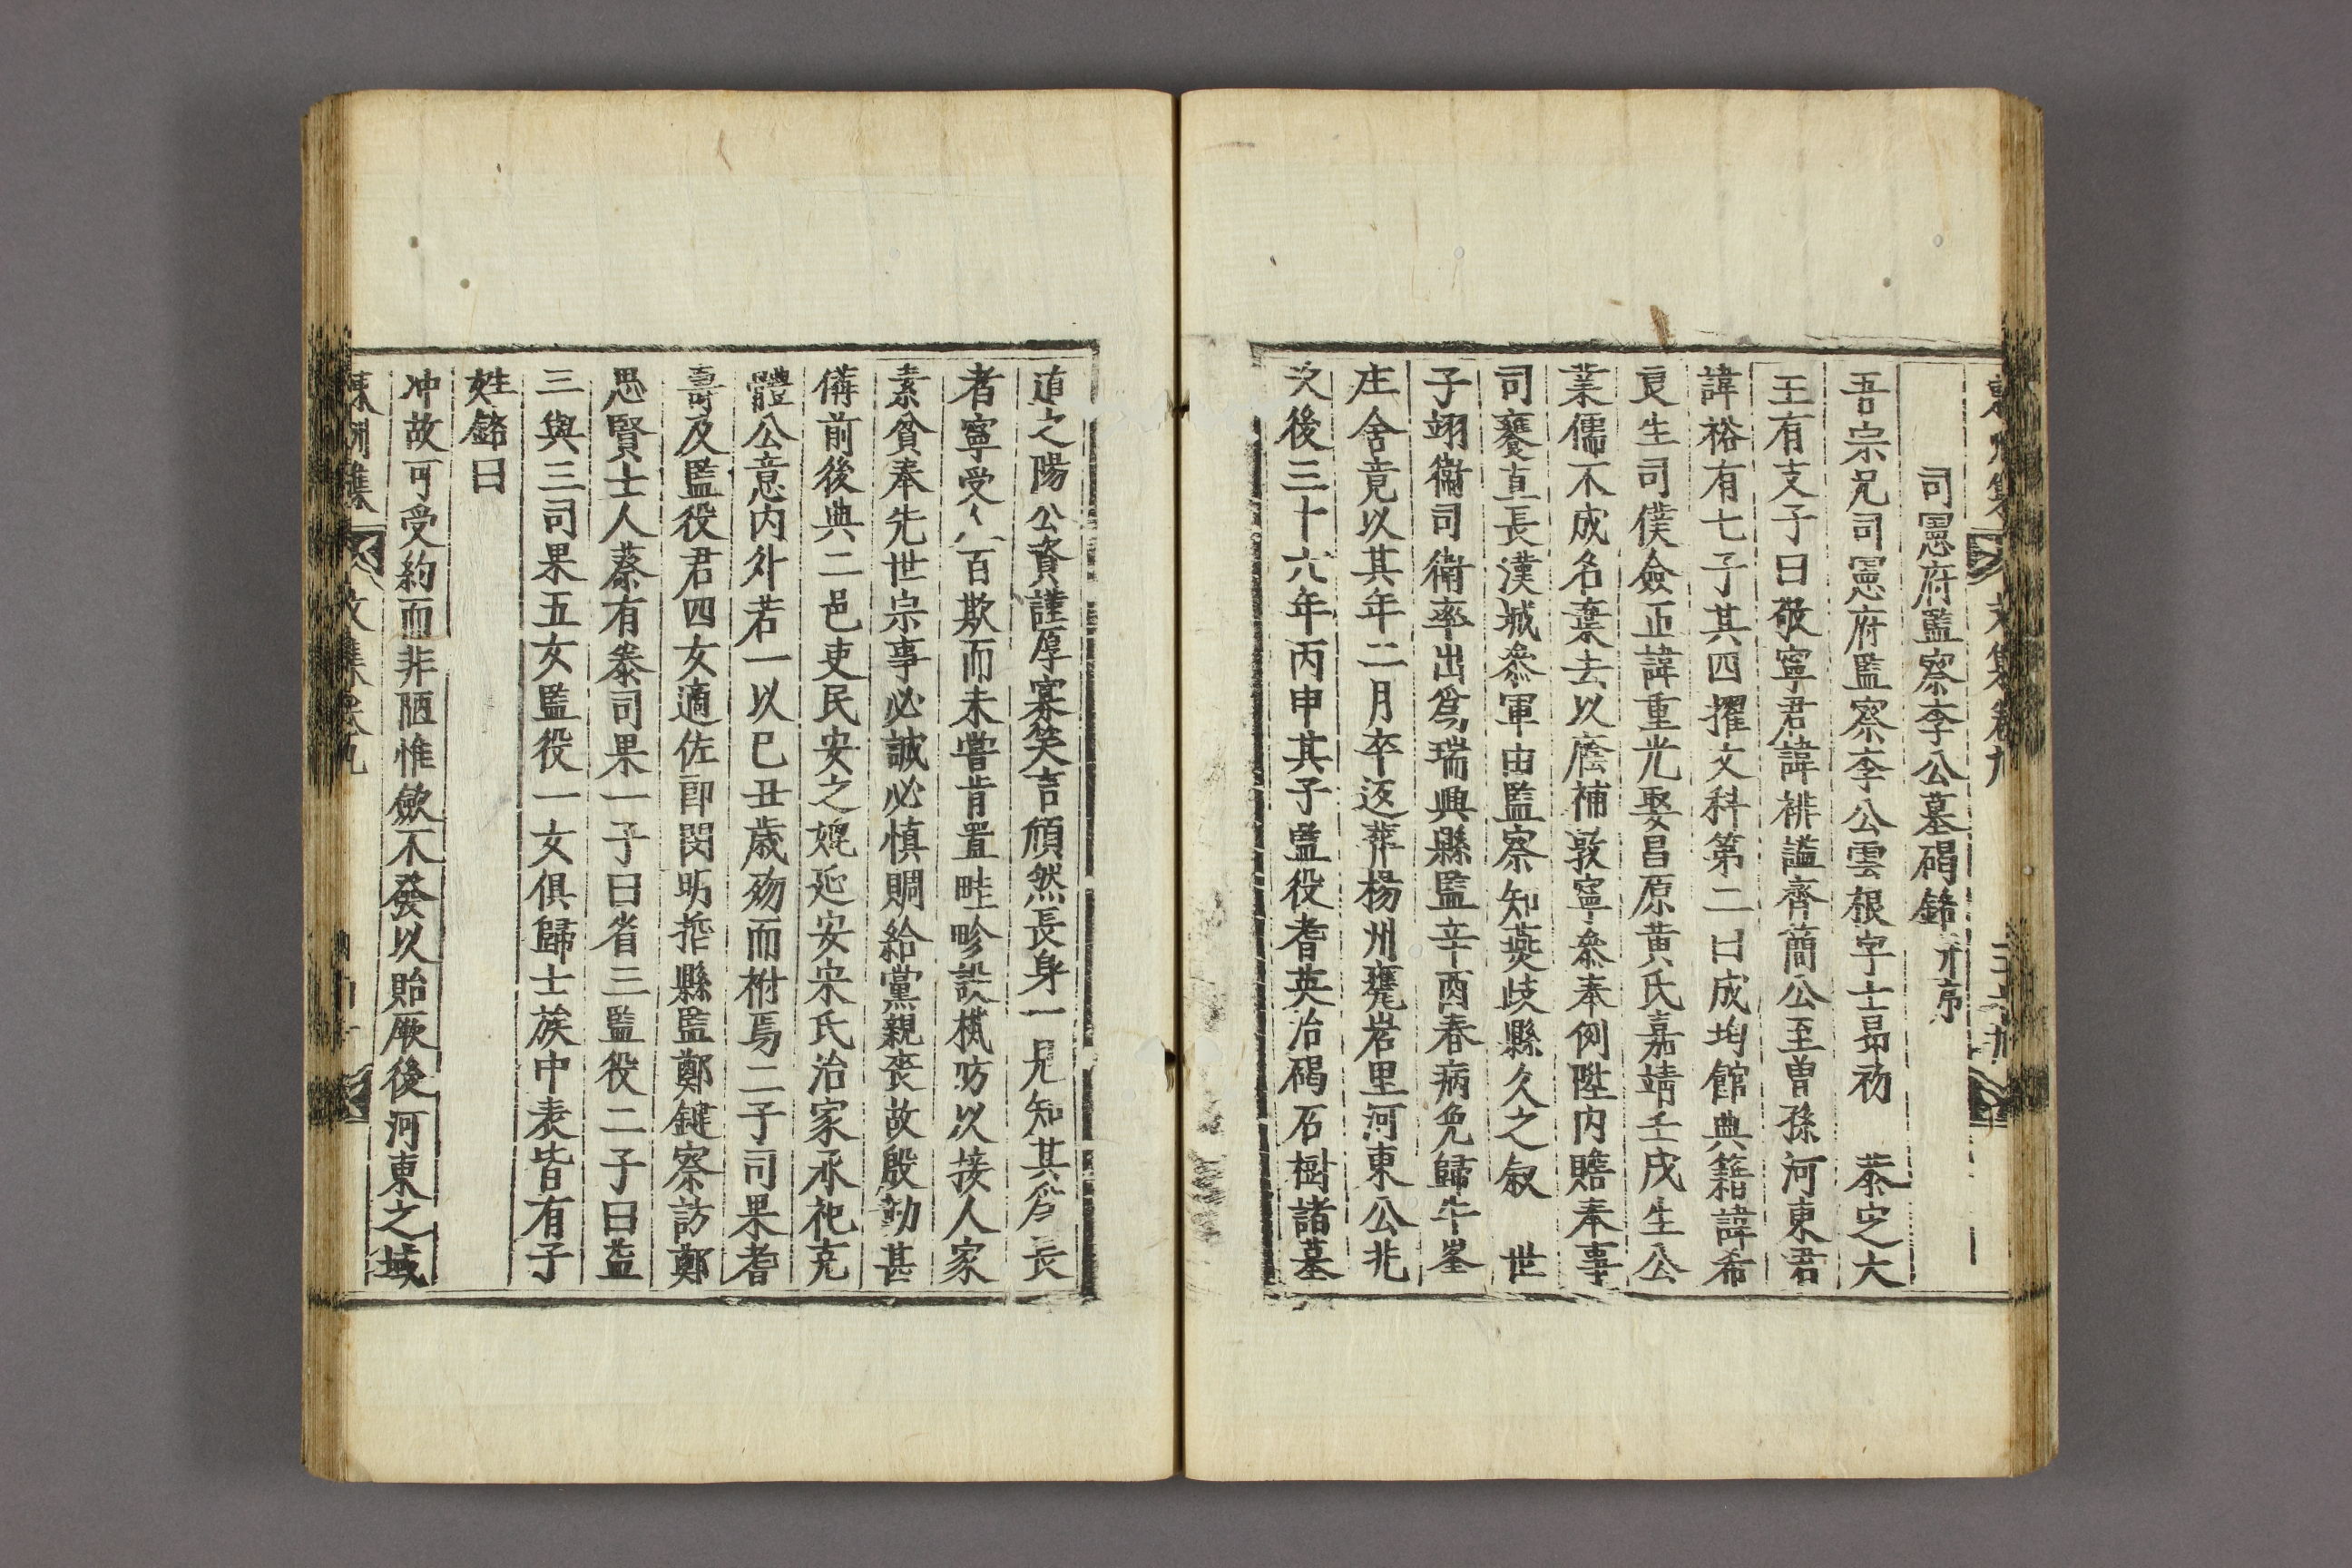 東州集 文集卷九 三十九
司憲府監察李公墓碣銘 幷序
吾宗兄司憲府監察李公雲根字士昻初 恭定大
王有支子曰敬寧君諱裶謚齊簡公至曾孫河東君
諱裕有七子其四擢文科第二曰成均館典籍諱希
良生司僕僉正諱重光娶昌原黃氏嘉靖壬戌生公
業儒不成名棄去以廕補敦寧叅奉例陞內贍奉事
司饔直長漢城叅軍由監察知燕歧縣久之叙 世
子翊衛司衛率出爲瑞興縣監辛酉春病免歸牛峯
庄舍竟以其年二月卒返葬楊州甕岩里河東公兆
次後三十六年丙申其子監役耆英治碣石樹諸墓
道之陽公資謹厚寡笑言頎然長身一見知其爲長
者寧受人百欺而未嘗肯置畦畛設機防以接人家
素貧奉先世宗事必誠必愼賙給黨親喪故殷勤甚
備前後典二邑吏民安之媲延安宋氏治家承祀克
體公意內外若一以己丑歲殁而祔焉二子司果耆
壽及監役君四女適佐郞閔昉挺縣監鄭鍵察訪鄭
思賢士人蔡有泰司果一子曰省三監役二子曰益
三與三司果五女監役一女俱歸士族中表皆有子
姓銘曰
冲故可受約而非陋惟斂不發以貽厥後河東之域
東州集 文集卷九 四十